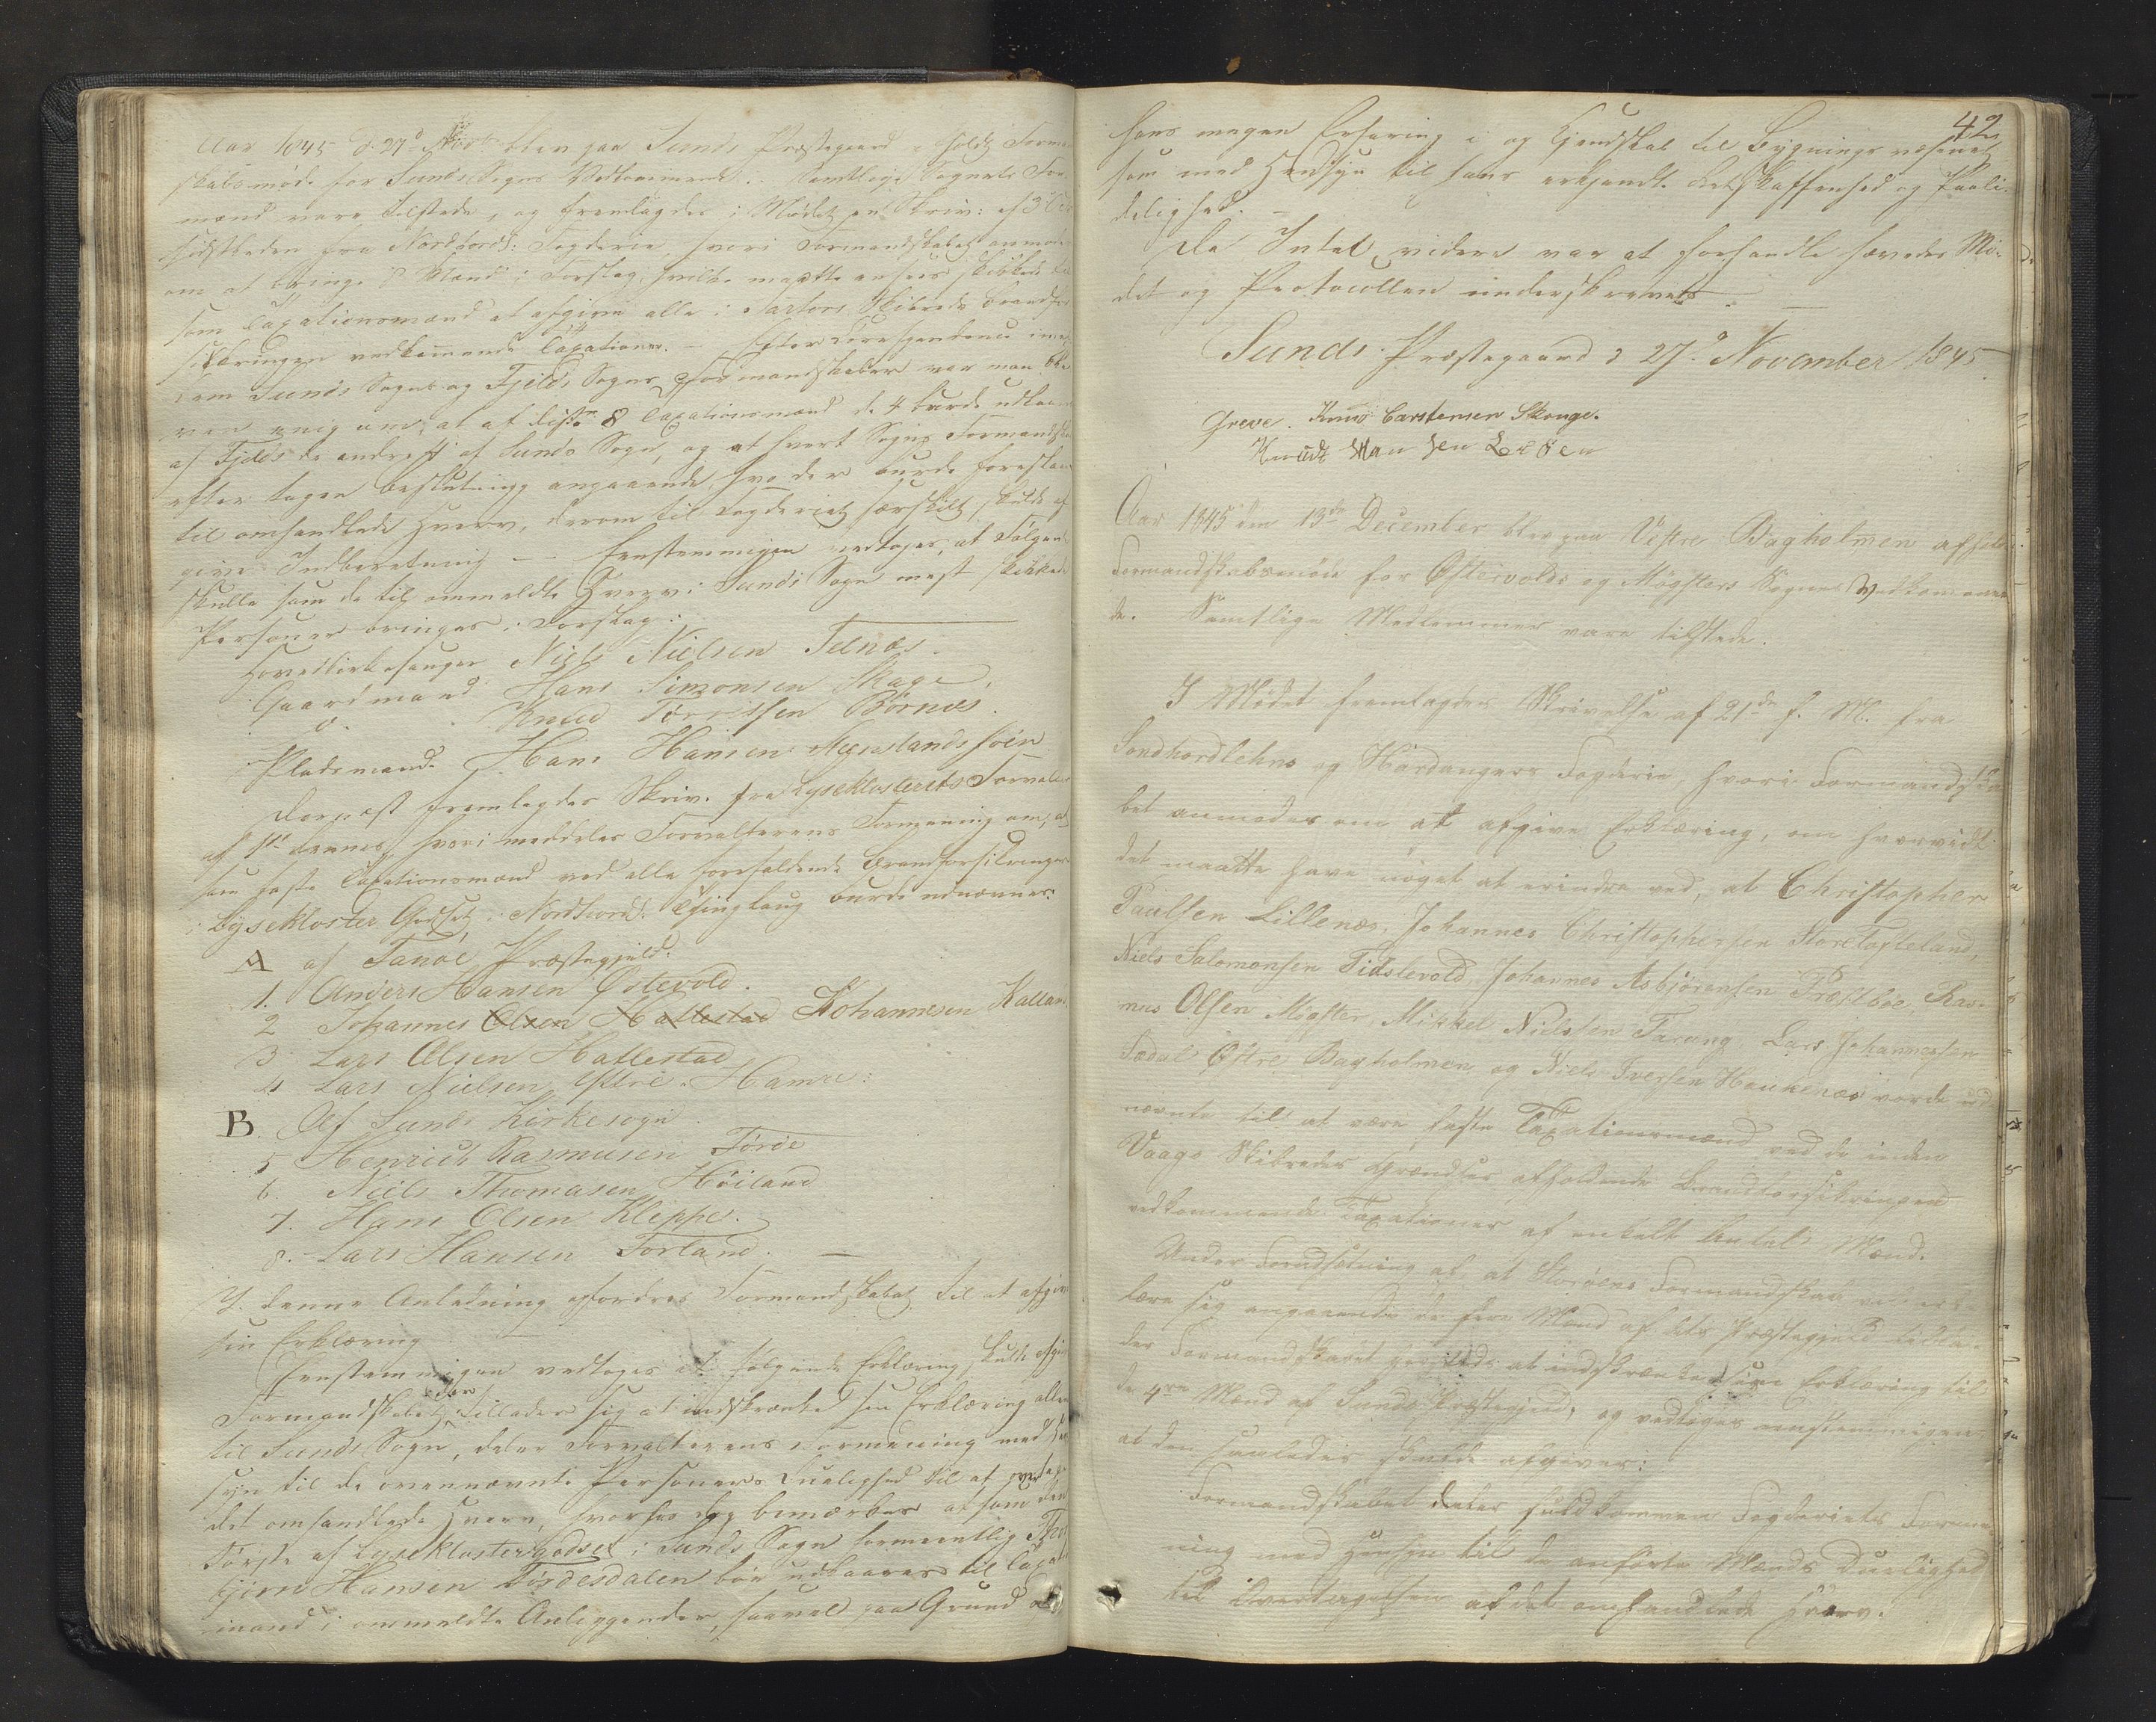 Aar 1845 d. 27d Novbr blev paa Sunds Præstegaard holdt Formand-
skabsmøde for Sunds Sogns Vedkommende. Samtlige Sognets For-
mænd vare tilstede, og fremlagdes i Mødet en Skriv: af 3
sidstleden fra Nordhordl: Fogderie, hvori Formandskabet anmodes
om at bringe 8 Mænd i Forslag, hvilke maatte ansees skikkede til
som Taxationsmænd at afgive alle i Sartors Skibrede Brandfor-
sikringen vedkommende Taxationer. – Efter Correspondence imel-
lem Sunds Sogns og Fjelds Sogns Formandskaber var man ble-
ven enig om, at af disse 8 Taxationsmænd de 4 burde udtages
af Fjelds de andre 4 af Sunds Sogn, og at hvert Sogns Formandskab
efter tagen Beslutning angaaende, hvo der burde foreslaaes
til omhandlede Hverv, derom til Fogderiet særskilt skulde af-
give Indberetning – Eenstemmigen vedtoges, at Følgende
skulle som de til ommeldte Hverv i Sunds Sogn mest skikkede
Personer bringes i Forslag:
Hovedkirkesanger Niels Nielsen Telnæs.
Gaardmand Hans Simonsen Skage,
d. Knud Tørrissen Børnæs.
Pladsmand Hans Hansen
Dernæst fremlagdes Skriv. fra Lyseklosterets Forvalter
af 1ste dennes, hvori meddeles Forvalterens Formening om, at
som faste Taxationsmænd ved alle forefaldende Brandforsikringer
i Lysekloster Godset i Nordhordl: Thinglaug burde udnævnes:
A af Fanøe Præstegjeld.
1. Anders Hansen Østevold.
2 Johannes Olsen Hatlestad Johannesen Kalland
3. Lars Olsen Hatlestad
4 Lars Nielsen Yttre-Hamre:
B. Af Sunds Kirkesogn
5 Henrich Rasmusen Førde
6. Niels Thomasen Høiland
7. Hans Olsen Kleppe.
8. Lars Hansen Forland. –
I denne Anledning opfordres Formandskabet til at afgive
sin Erklæring
Eenstemmigen vedtoges at følgende Erklæring skulde afgives
Formandskabet, der tillader sig at indskrænke sin Erklæring allene
til Sunds Sogn, deler Forvalterens Formening med Hen-
syn til de ovennævnte Personers Duelighed til at overtage
det omhandlede Hverv, hvorhos dog bemærkes at som den
Første af Lyseklostergodset i Sunds Sogn formeentlig Thor-
bjørn Hansen Førdesdalen bør udkaares til Taxations-
mand i ommeldte Anliggender, saavel paa Grund af
42
hans megen Erfaring i og Kjendskab til Bygningsvæsenet
som med Hensyn til hans erkjendte Retskaffenhed og Paali-
delighed. –
Da Intet videre var at forhandle hævedes Mø-
det og Protocollen underskrevet. –
Sunds Præstegaard d 27d November 1845
Greve. Knud Carstensen Skouge.
Knudt Hansen
Aar 1845 den 13de December blev paa Vestre Bagholmen afholdt
Formandskabsmøde for Østervolds og Møgsters Sognes Vedkommen-
de. Samtlige Medlemmer vare tilstede.
I Mødet fremlagdes Skrivelse af 21de f. M. fra
Søndhordlehns og Hardangers Fogderie, hvori Formandska-
bet anmodes om at afgive Erklæring, om hvorvidt
det maatte have noget at erindre ved, at Christopher
Paulsen Lillenæs, Johannes Christophersen Storetofteland,
Niels Salomonsen Tidslevold, Johannes Asbjørensen Præstbøe, Ras-
mus Olsen Møgster, Mikkel Nielsen Tarang, Lars Johannessen
Sædal Østre Bagholmen og Niels Iversen Haukenæs vorde ud-
nævnte til at være faste Taxationsmænd ved de inden
Vaags Skibredes Grændser afholdende Brandforsikringen
vedkommende Taxationer af enkelt Antal Mænd.
Under Forudsætning af at Storøens Formandskab vil erk-
lære sig angaaende de fire Mænd af dets Præstegjeld tilla-
der Formandskabet herstæds at indskrænke sin Erklæring til
de 4re Mænd af Sunds Præstegjeld, og vedtoges eenstemmigen
at den saaledes skulde afgives:
Formandskabet deler fuldkommen Fogderiets Forme-
ning med Hensyn til de anførte Mænds Duelighed
til Overtagelsen af det omhandlede Hverv.